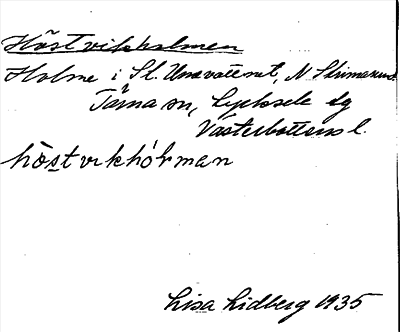 Höstvikholmen
Holme i St. Umevattnet, N Strimasund
Tärna sn, Lycksele lg
Västerbottens l.
hö̀stvikhól̀man
Lisa Lidberg 1935